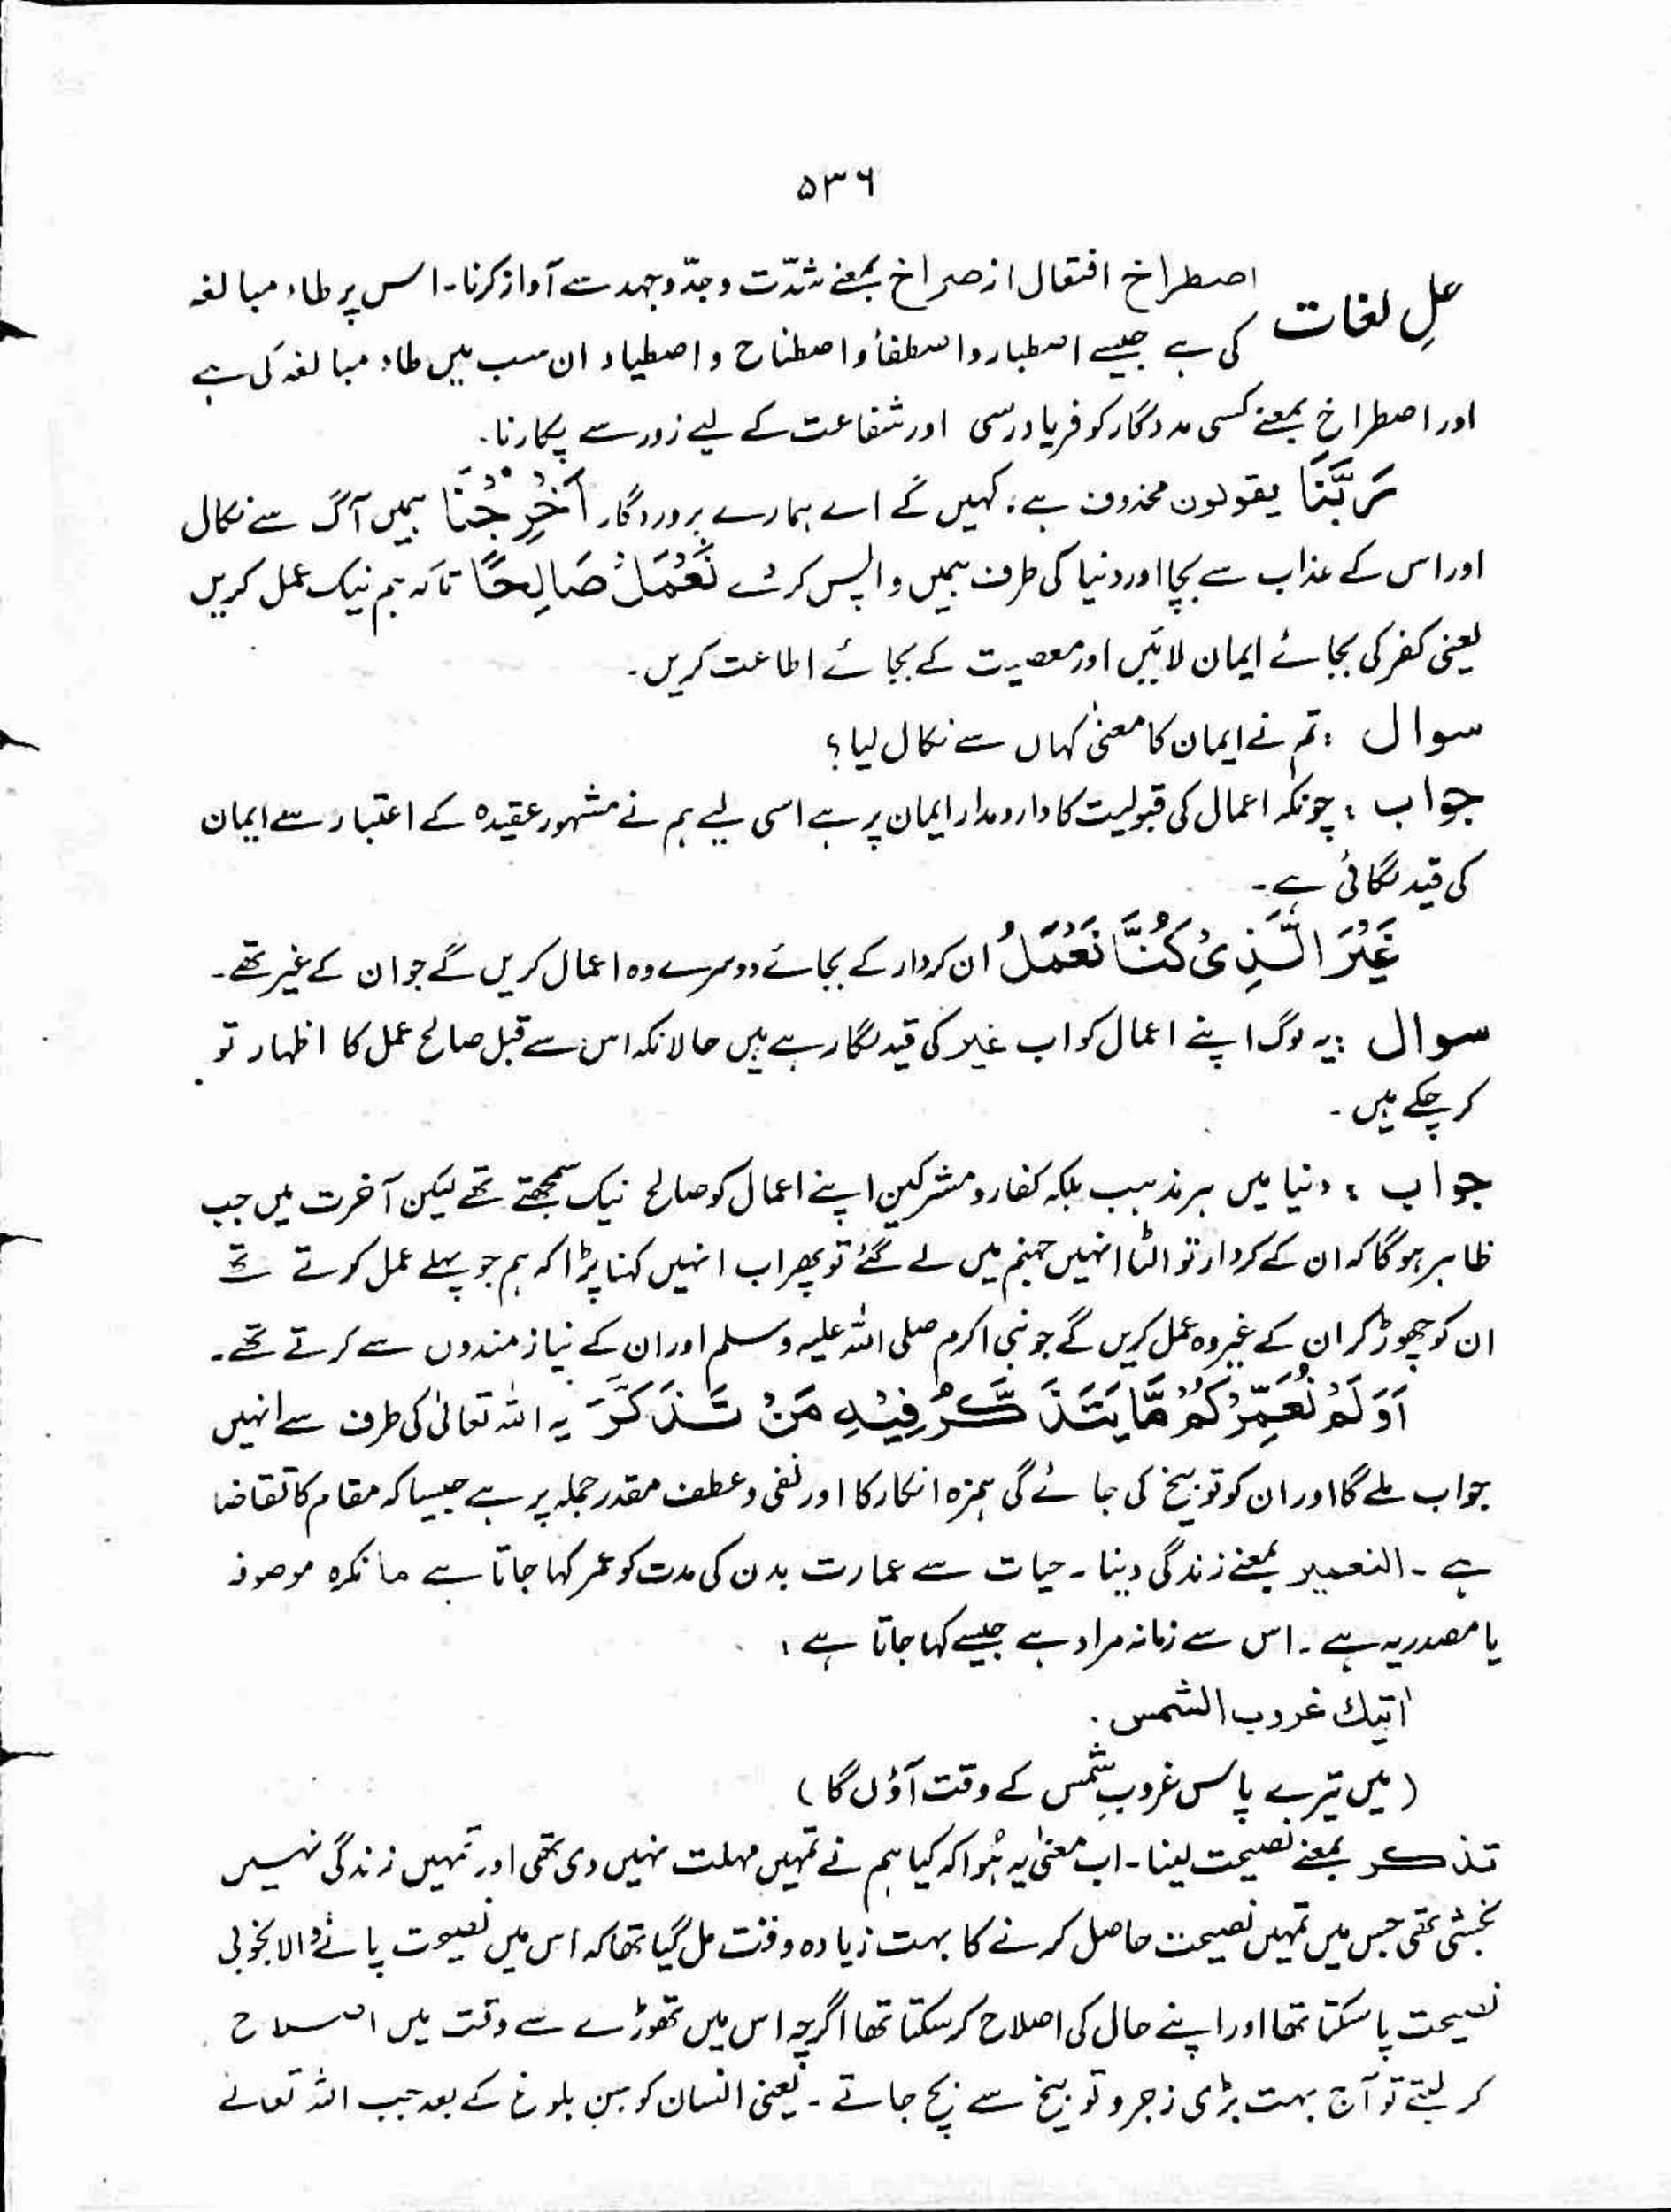 ۵۳۶
حلِ لغات اصطراخ افتعال از صراخ بمعنے شدّت و جدّ و جہد سے آواز کرنا۔ اس پر طاء مبالغہ
کی ہے جیسے اصطبار و اصطفاً و اصطناح و اصطیاد ان سب میں طاء مبالغہ کی ہے
اور اصطراخ بمعنے کسی مددگار کو فریاد رسی اور شفاعت کے لیے زور سے پکارنا۔
رَبَّنَا یقولون محذوف ہے، کہیں گے اے ہمارے پروردگار اَخْرِجْنَا ہمیں آگ سے نکال
اور اس کے عذاب سے بچا اور دنیا کی طرف ہمیں واپس کر دے نَعْمَلْ صَالِحًا تاکہ ہم نیک عمل کریں
یعنی کفر کی بجائے ایمان لائیں اور معصیت کے بجائے اطاعت کریں۔
سوال : تم نے ایمان کا معنیٰ کہاں سے نکال لیا؟
جواب : چونکہ اعمال کی قبولیت کا دارومدار ایمان پر ہے اسی لیے ہم نے مشہور عقیدہ کے اعتبار سے ایمان
کی قید لگائی ہے۔
غَیْرَ الَّذِیْ کُنَّا نَعْمَلُ ان کردار کے بجائے دوسرے وہ اعمال کریں گے جو ان کے غیر تھے۔
سوال : یہ لوگ اپنے اعمال کو اب غیر کی قید لگا رہے ہیں حالانکہ اس سے قبل صالح عمل کا اظہار تو
کر چکے ہیں۔
جواب : دنیا میں ہر مذہب بلکہ کفار و مشرکین اپنے اعمال کو صالح نیک سمجھتے تھے لیکن آخرت میں جب
ظاہر ہوگا کہ ان کے کردار تو الٹا انہیں جہنم میں لے گئے تو پھر اب انہیں کہنا پڑا کہ ہم جو پہلے عمل کرتے تھے
ان کو چھوڑ کر ان کے غیر وہ عمل کریں گے جو نبی اکرم صلی اللہ علیہ وسلم اور ان کے نیازمندوں سے کرتے تھے۔
اَوَلَمْ نُعَمِّرْکُمْ مَّا یَتَذَکَّرُ فِیْہِ مَنْ تَذَکَّرَ یہ اللہ تعالیٰ کی طرف سے انہیں
جواب ملے گا اور ان کو توبیخ کی جائے گی ہمزہ انکار کا اور نفی و عطف مقدر جملہ پر ہے جیسا کہ مقام کا تقاضا
ہے۔ التعمیر بمعنے زندگی دینا۔ حیات سے عمارت بدن کی مدت کو عمر کہا جاتا ہے ما نکرہ موصوفہ
یا مصدریہ ہے۔ اس سے زمانہ مراد ہے جیسے کہا جاتا ہے :
اٰتیك غروب الشمس۔
(میں تیرے پاس غروبِ شمس کے وقت آؤں گا)
تذکر بمعنے نصیحت لینا۔ اب معنیٰ یہ ہُوا کہ کیا ہم نے تمہیں مہلت نہیں دی تھی اور تمہیں زندگی نہیں
بخشی تھی جس میں تمہیں نصیحت حاصل کرنے کا بہت زیادہ وقت مل گیا تھا کہ اس میں نصیحت پانے والا بخوبی
نصیحت پا سکتا تھا اور اپنے حال کی اصلاح کر سکتا تھا اگرچہ اس میں تھوڑے سے وقت میں اصلاح
کر لیتے تو آج بہت بڑی زجر و توبیخ سے بچ جاتے۔ یعنی انسان کو سِن بلوغ کے بعد جب اللہ تعالےٰ